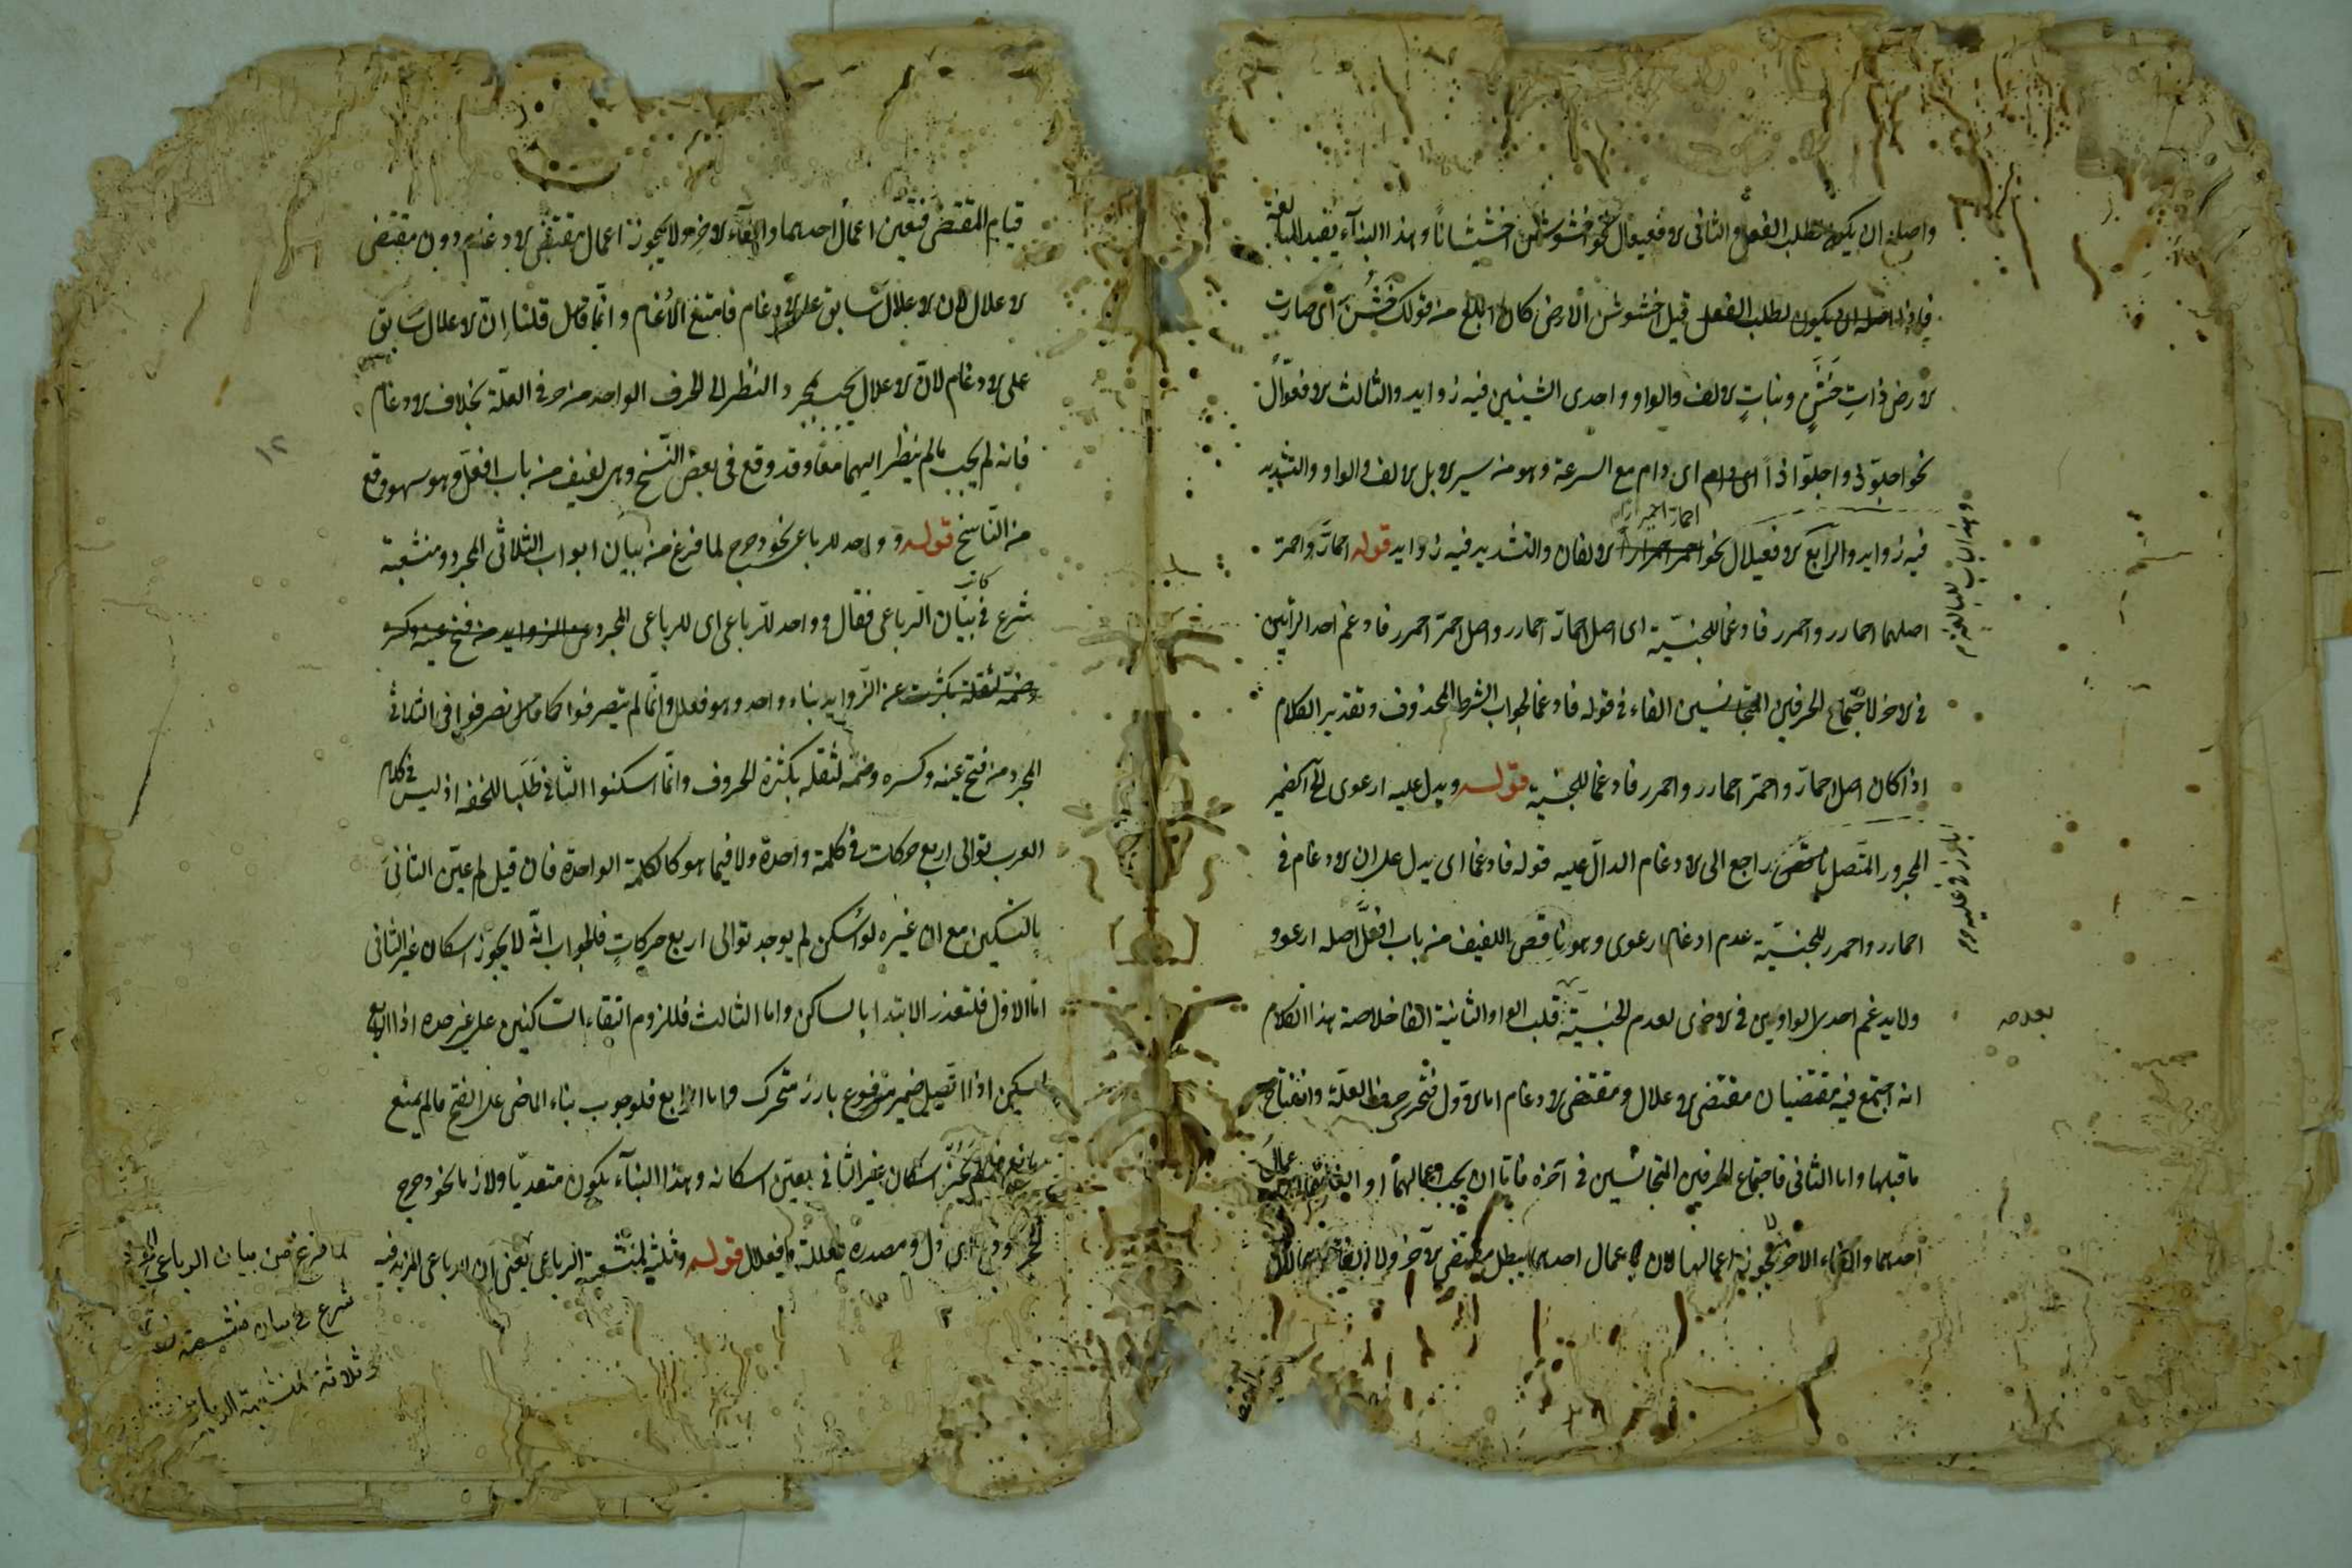 واصله ان يكون لطلب الفعل والثانى الافعيعال نحو اخشوشن اخشيشانًا وهذا البنآء يفيد المبالغة
فاذا قيل اخشوشن الارض كان ابلغ من قولك خَشُنَ اى صارت
الارض ذاتِ خَشَنٍ ونباتٍ الالف والواو واحدى الشينين فيه زوايد والثالث الافعوّال
نحو اجلوّذ واجلوّاذاً اى دام مع السرعة وهو من سير الابل الالف والواو والتشديد
فيه زوايد والرابع الافعيلال نحو احمارّ احميرارا الالفان والتشديد فيه زوايد قوله احمارّ واحمرّ
اصلهما احمارر واحمرر فادغما للجنسيّة اى اصل احمارّ احمارر واصل احمرّ احمرر فادغم احد الرائين
فى الاخر لاجتماع الحرفين المتجانسين الفاء فى قوله فادغما لجواب الشرط المحذوف وتقدير الكلام
اذا كان اصل احمارّ واحمرّ احمارر واحمرر فادغما للجنسية قوله ويدل عليه ارعوى الخ الضمير
المجرور المتّصل راجع الى الادغام الدالّ عليه قوله فادغما اى يدل على ان الادغام فى
احمارر واحمرر للجنسيّة عدم ادغام ارعوى وهو ناقص اللفيف من باب افعلّ اصله ارعوو
ولا يدغم احدى الواوين فى الاخرى لعدم الجنسيّة قلب الواو الثانية الفا خلاصة هذا الكلام
انه اجتمع فيه مقتضيان مقتضى الاعلال ومقتضى الادغام اما الاول فتحرك حرف العلّة وانفتاح
ما قبلها واما الثانى فاجتماع الحرفين المتجانسين فى آخره فاما ان يجب اعمالهما او
احدهما والغاء الاخر يجوز اعمالهما لان اعمال احدهما يبطل مقتضى الآخر ولا
قيام المقتضى فتعيّن اعمال احدهما والغآء الاخر ولا يجوز اعمال مقتضى الادغام دون مقتضى
الاعلال لان الاعلال سابق على الادغام فامتنع الادغام وانّما قلنا اِنّ الاعلال سَابق
على الادغام لانّ الاعلال يجب بمجرد النظر الى الحرف الواحد من حرف العلّة بخلاف الادغام
فانه لم يجب مالم ينظر اليهما معًا وقد وقع فى بعض النّسخ وهى لفيف من باب افعلّ وهو سهو وقع
من النّاسخ قوله وواحد للرباعى نحو دحرج لما فرغ من بيان ابواب الثلاثى المجرد ومنشعبة
شرع فى بيان الرباعى فقال وواحد للرباعى اى للرباعى المجرد
عن الزّوايد بناء واحد وهو فعلل وانّما لم يتصرفوا كما تصرفوا فى الثلاثى
المجرد من فتح عينه وكسره وضمه لثقله بكثرة الحروف وانّما اسكنوا الثانى طَلَبا للخفه اذ ليس فى كلام
العرب توالى اربع حركات فى كلمة واحدة ولا فيما هو كالكلمة الواحدة فان قيل لم عيّن الثانِىَ
بالتسكين مع ان غيره لو اُسكن لم يوجد توالى اربع حركاتٍ فالجواب انّه لا يجوز اسكان غير الثانى
امّا الاوّل فلتعذر الابتدا بالساكن واما الثالث فللزوم التقاء السّاكنين على غير حده اذا
اسكن اذا اتصل ضمير مرفوع بارز متحرك واما الرابع فلوجوب بناء الماضى على الفتح مالم يمنع
مانع فلمّا لم يَجُز اسكان غير الثانى تعيّن اسكانه وهذا البنآء يكون متعديّا ولازما نحو دحرج
الحجر ومصدره فعللة وفعلال قوله وثلثة لمنشعبة الرباعى يعنى ان الرباعى المزيد فيه
لما فرغ من بيان الرباعى المجرد
شرع فى بيان منشعبة
وثلاثة لمنشعبة الرباعى